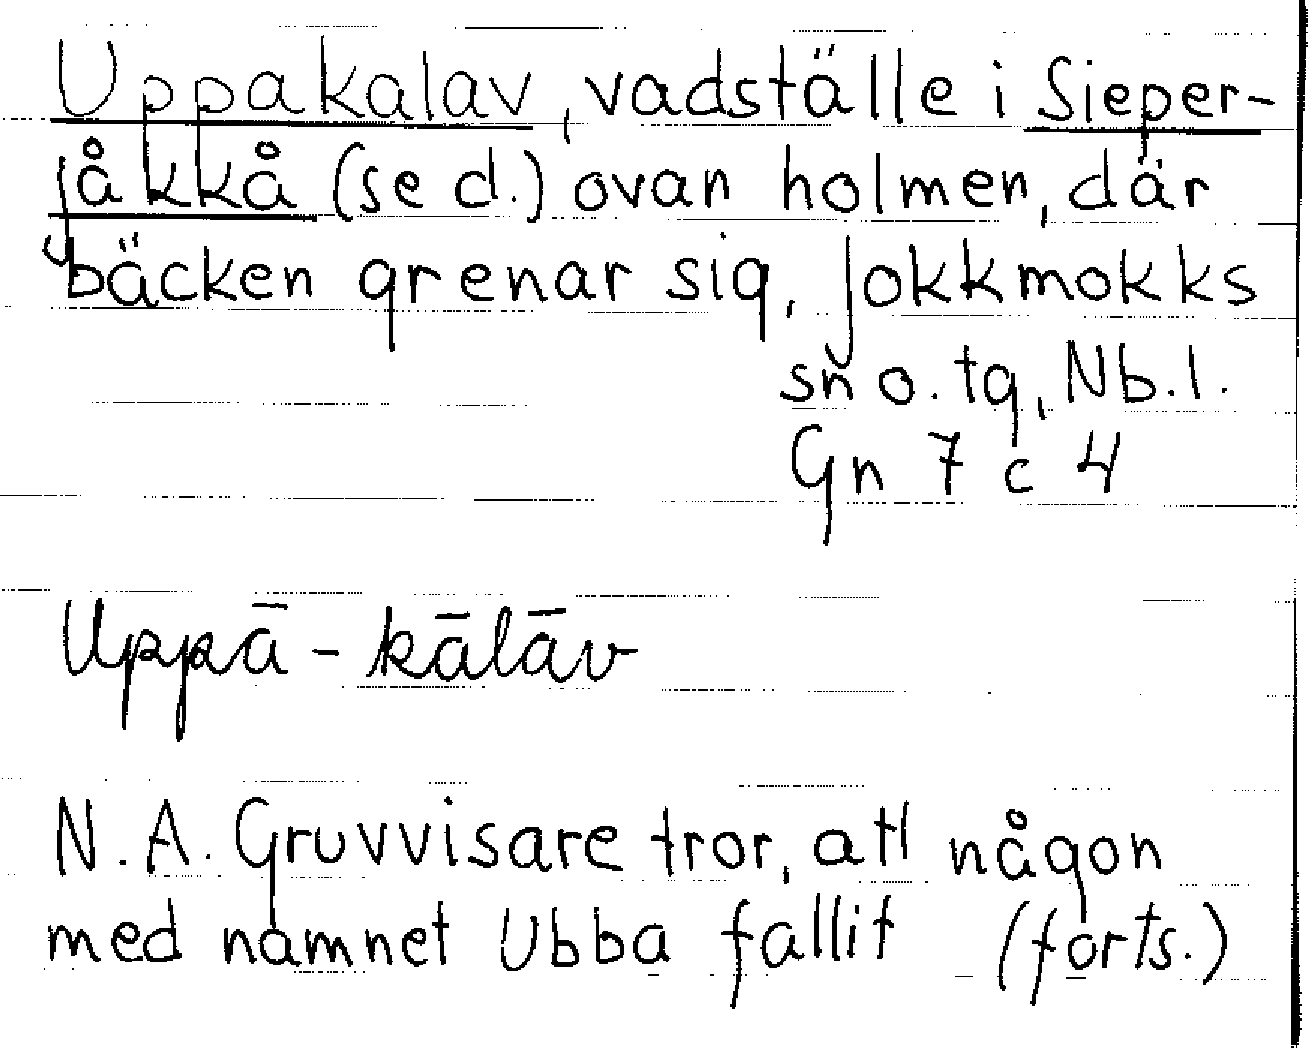 Uppakalav, vadställe i Sieper-
jåkkå (se d.) ovan holmen, där
bäcken grenar sig, Jokkmokks
sn o. tg, Nb.l.
Gn 7 c 4
Uppā-kālāv
N.A. Gruvvisare tror, att någon
med namnet Ubba fallit (forts.)